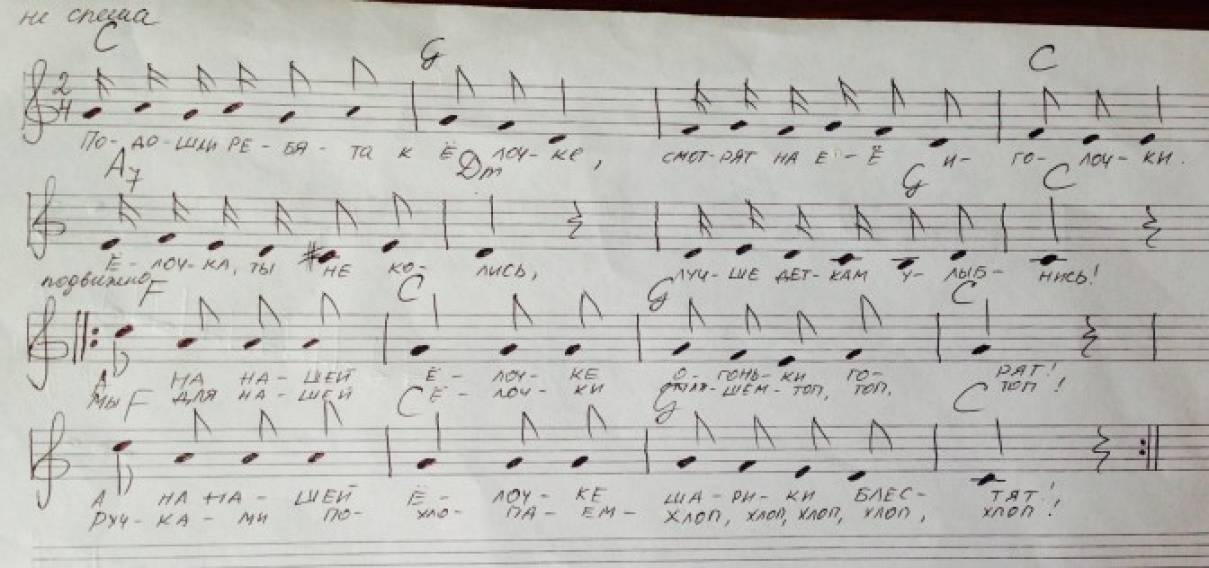 не спеша
C G C
2
4
ПО-ДО-ШЛИ РЕ-БЯ-ТА К Ё ЛОЧ-КЕ, СМОТ-РЯТ НА Е-Ё И-ГО-ЛОЧ-КИ.
A7 Dm G C
Ё-ЛОЧ-КА, ТЫ НЕ КО-ЛИСЬ, ЛУЧ-ШЕ ДЕТ-КАМ У-ЛЫБ-НИСЬ!
подвижно
F C G C
А НА НА-ШЕЙ Ё-ЛОЧ-КЕ О-ГОНЬ-КИ ГО-РЯТ!
МЫ ДЛЯ НА-ШЕЙ Ё-ЛОЧ-КИ ШЕМ-ТОП, ТОП, ТОП!
F C G C
А НА НА-ШЕЙ Ё-ЛОЧ-КЕ ША-РИ-КИ БЛЕС-ТЯТ!,
РУЧ-КА-МИ ПО-ХЛО-ПА-ЕМ-ХЛОП, ХЛОП, ХЛОП, ХЛОП, ХЛОП!